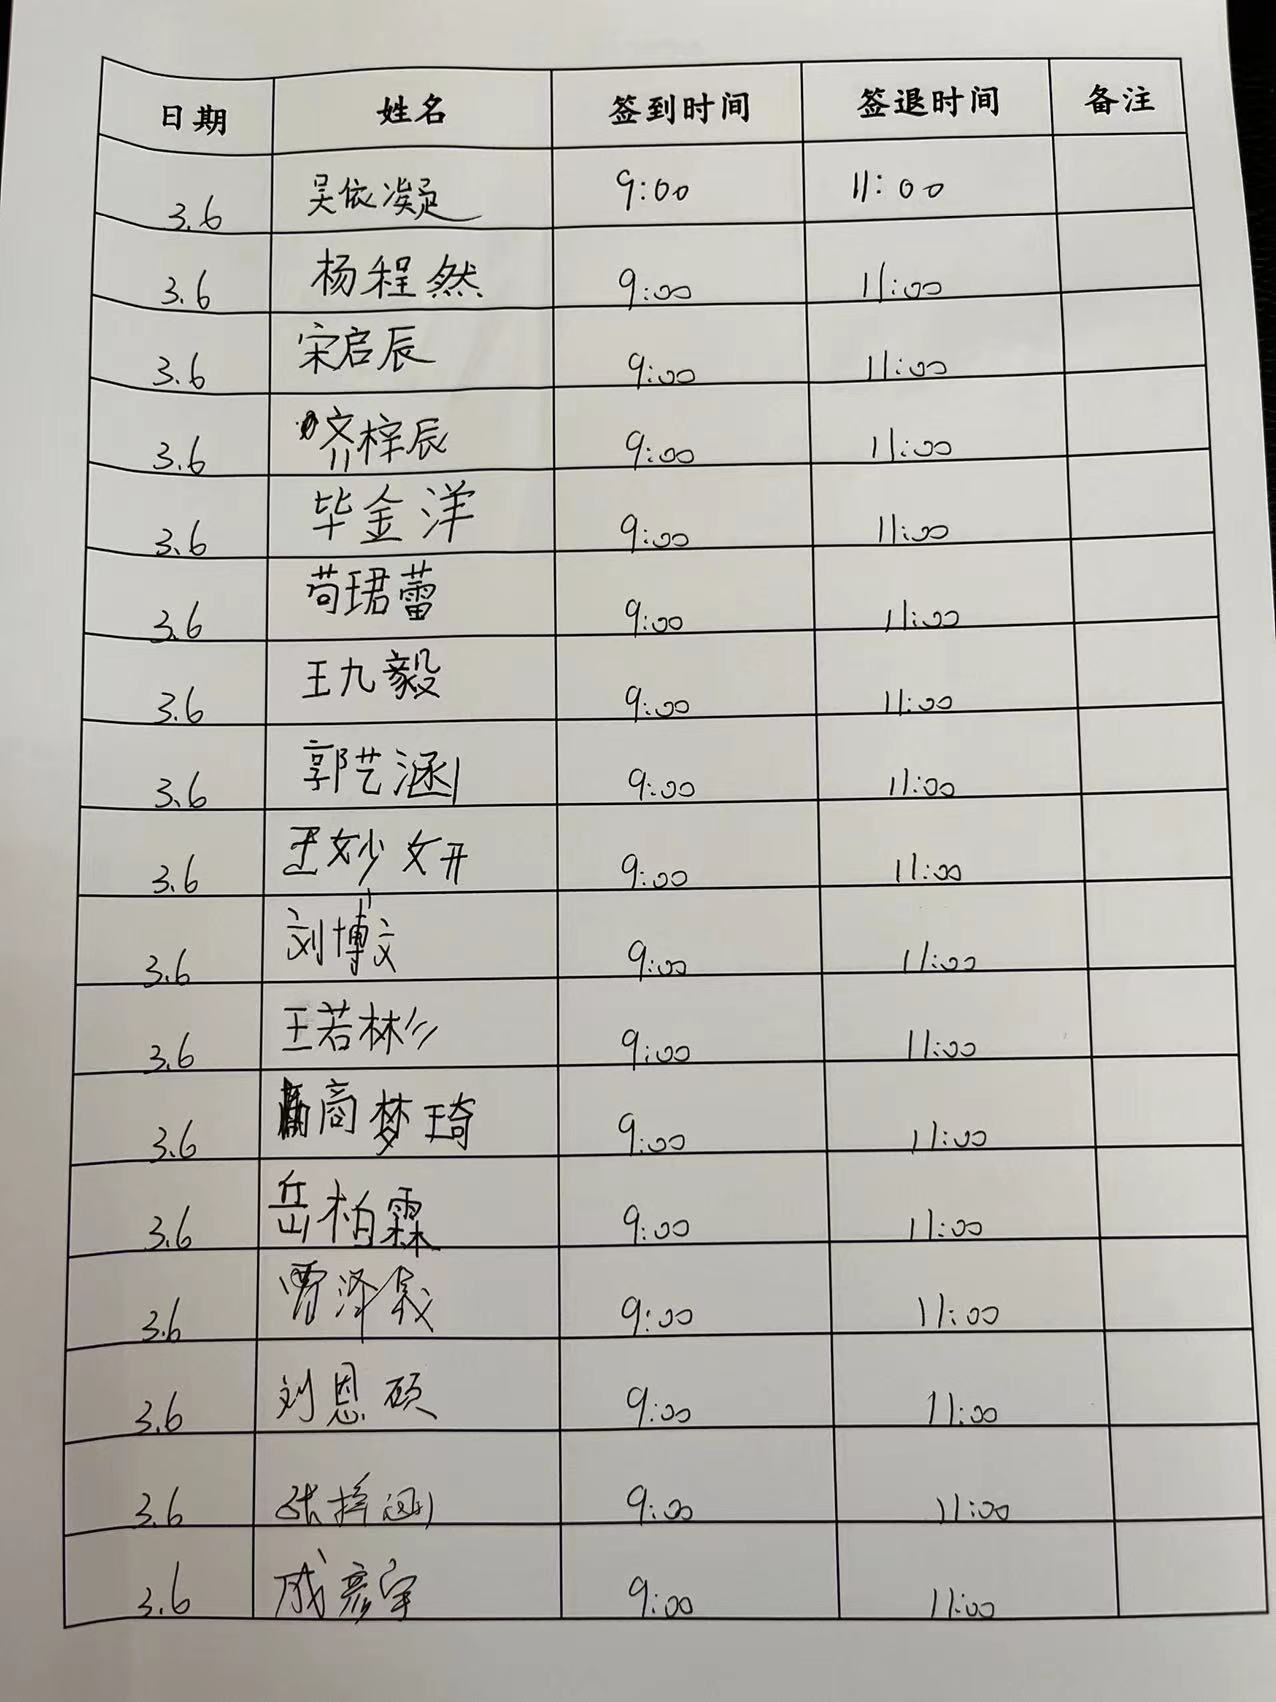 日期 姓名 签到时间 签退时间 备注
3.6 吴依凝 9:00 11:00
3.6 杨程然 9:00 11:00
3.6 宋启辰 9:00 11:00
3.6 齐梓辰 9:00 11:00
3.6 毕金洋 9:00 11:00
3.6 苟珺蕾 9:00 11:00
3.6 王九毅 9:00 11:00
3.6 郭艺涵 9:00 11:00
3.6 王妙妍 9:00 11:00
3.6 刘博文 9:00 11:00
3.6 王若彬 9:00 11:00
3.6 商梦琦 9:00 11:00
3.6 岳柏霖 9:00 11:00
3.6 9:00 11:00
3.6 刘恩硕 9:00 11:00
3.6 张梓涵 9:00 11:00
3.6 成彦宇 9:00 11:00